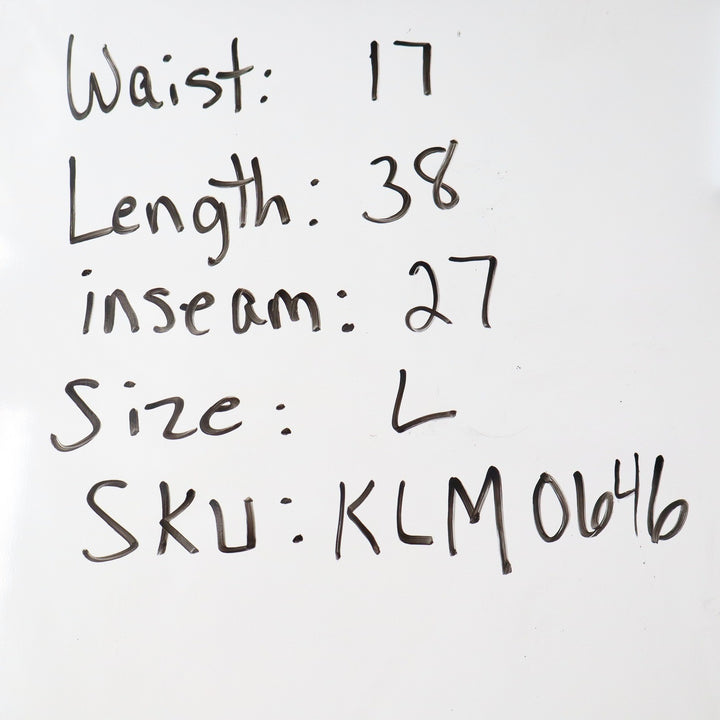 Waist: 17
Length: 38
inseam: 27
Size: L
SKU: KLM0646